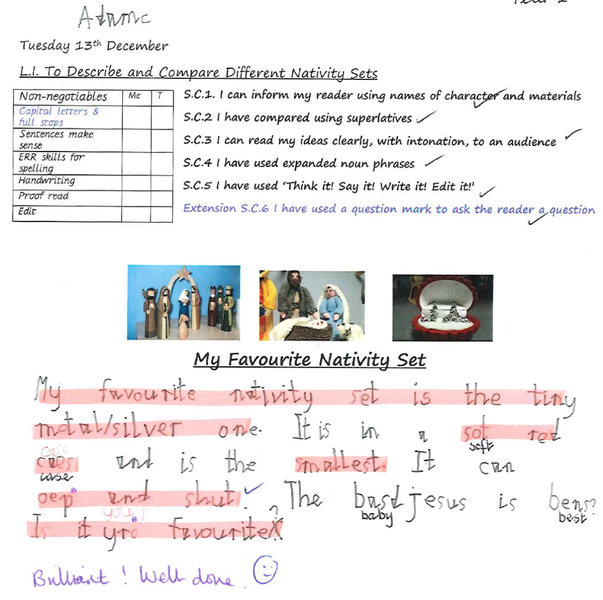 Tuesday 13th December
L.I. To Describe and Compare Different Nativity Sets
Non-negotiables Me T
Capital letters & full stops
Sentences make sense
ERR skills for spelling
Handwriting
Proof read
Edit
S.C.1. I can inform my reader using names of character and materials
S.C.2 I have compared using superlatives
S.C.3 I can read my ideas clearly, with intonation, to an audience
S.C.4 I have used expanded noun phrases
S.C.5 I have used 'Think it! Say it! Write it! Edit it!'
Extension S.C.6 I have used a question mark to ask the reader a question
My Favourite Nativity Set
My favourite nativity set is the tiny
metal/silver one. It is in a sot red
soft
and is the smallest. It can
case
oep and shut. The jesus is
baby best
Is it favourite
Brilliant! Well done.